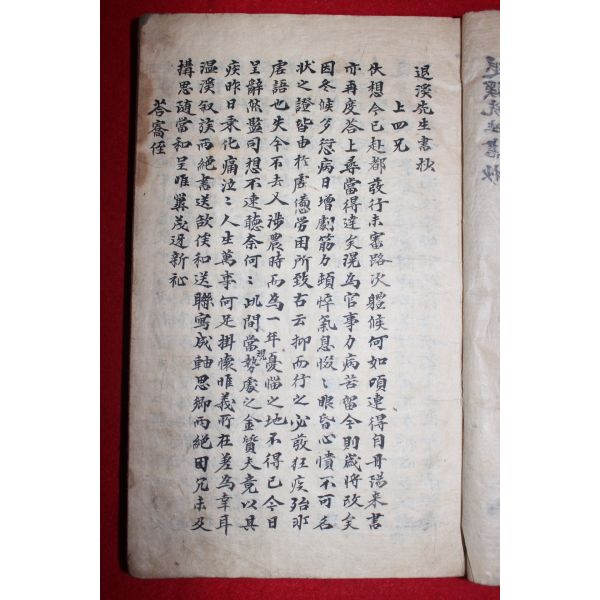 退溪先生書抄
上四兄
伏想今已赴都發行未審路次體候何如頃連得自丹陽來書
亦再度答上尋當得達矣滉為官事力病苦留今則歲將改矣
因冬候多愆病日增劇筋力頓悴氣息惙〻眼昏心憒不可名
狀之證皆由於虛憊勞困所致古云抑而行之必發狂疾殆非
虛語也失今不去又涉農時而為一年憂惱之地不得已今日
呈辭然監司想不速聽奈何〻〻此間當觀勢處之金贊夫竟以其
疾昨日乘化痛泣〻〻人生萬事何足掛懷唯義所在差為幸耳
溫溪叙族兩絶書送欲俟和送聯寫成軸思卿兩絶因兄未及
搆思隨當和呈唯冀茂迓新祉
答㝯侄
退溪先生書抄